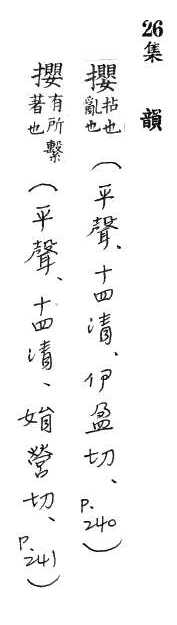 26集韻
攖拈也亂也（平聲、十四清、伊盈切、P.240）
攖有所繫著也（平聲、十四清、娟營切、P.241）